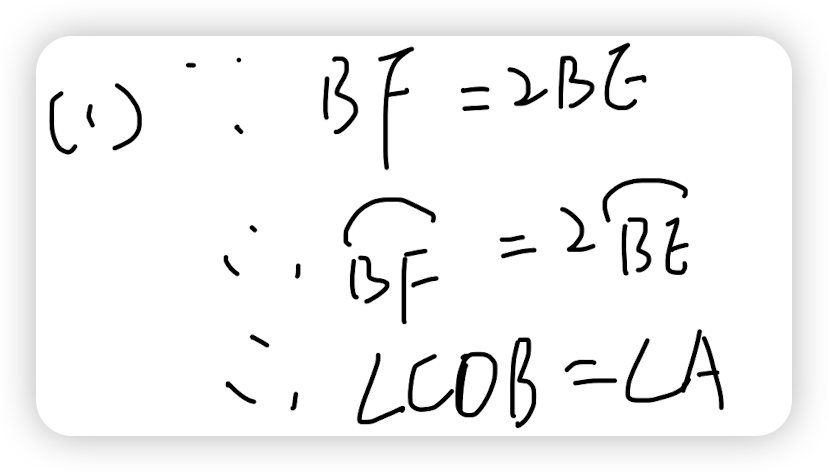 (1) ∵ BF = 2BE
∴ ⌒BF = 2⌒BE
∴ ∠COB = ∠A